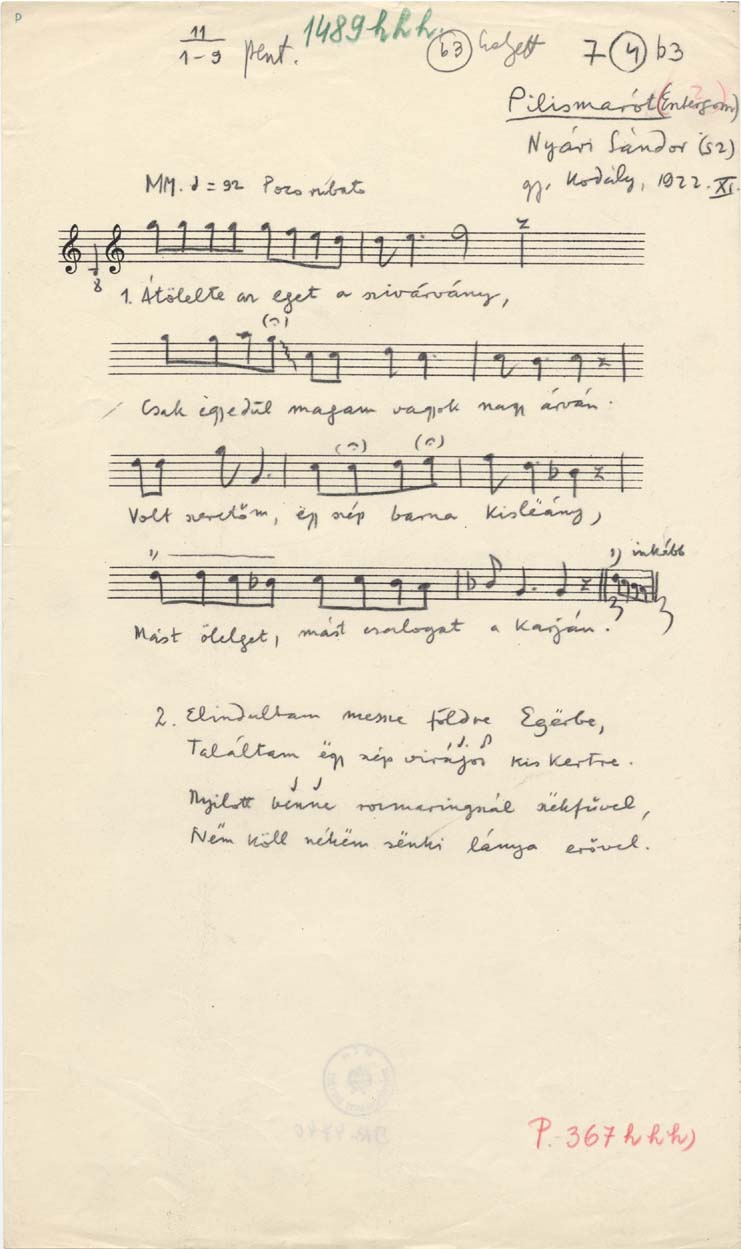 D
11
1-9 pent.
1489hhh
b3 helyett 7 4 b3
Pilismarót (Esztergom)
Nyári Sándor (52)
gy. Kodály, 1922. XI.
MM. = 92 Poco rubato
8
1. Átölelte az eget a szivárvány,
Csak égyedül magam vagyok nagy árván.
Volt szeretőm, ëgy szép barna kisléány,
1) inkább
Mást ölelget, mást csalogat a karján.
2. Elindultam messze földre Egërbe,
Találtam ëgy szép virágos kis kertre.
Nyilott bénne rozmaringszál székfűvel,
Nëm köll nékëm sënki lánya erővel.
P. 367hhh)